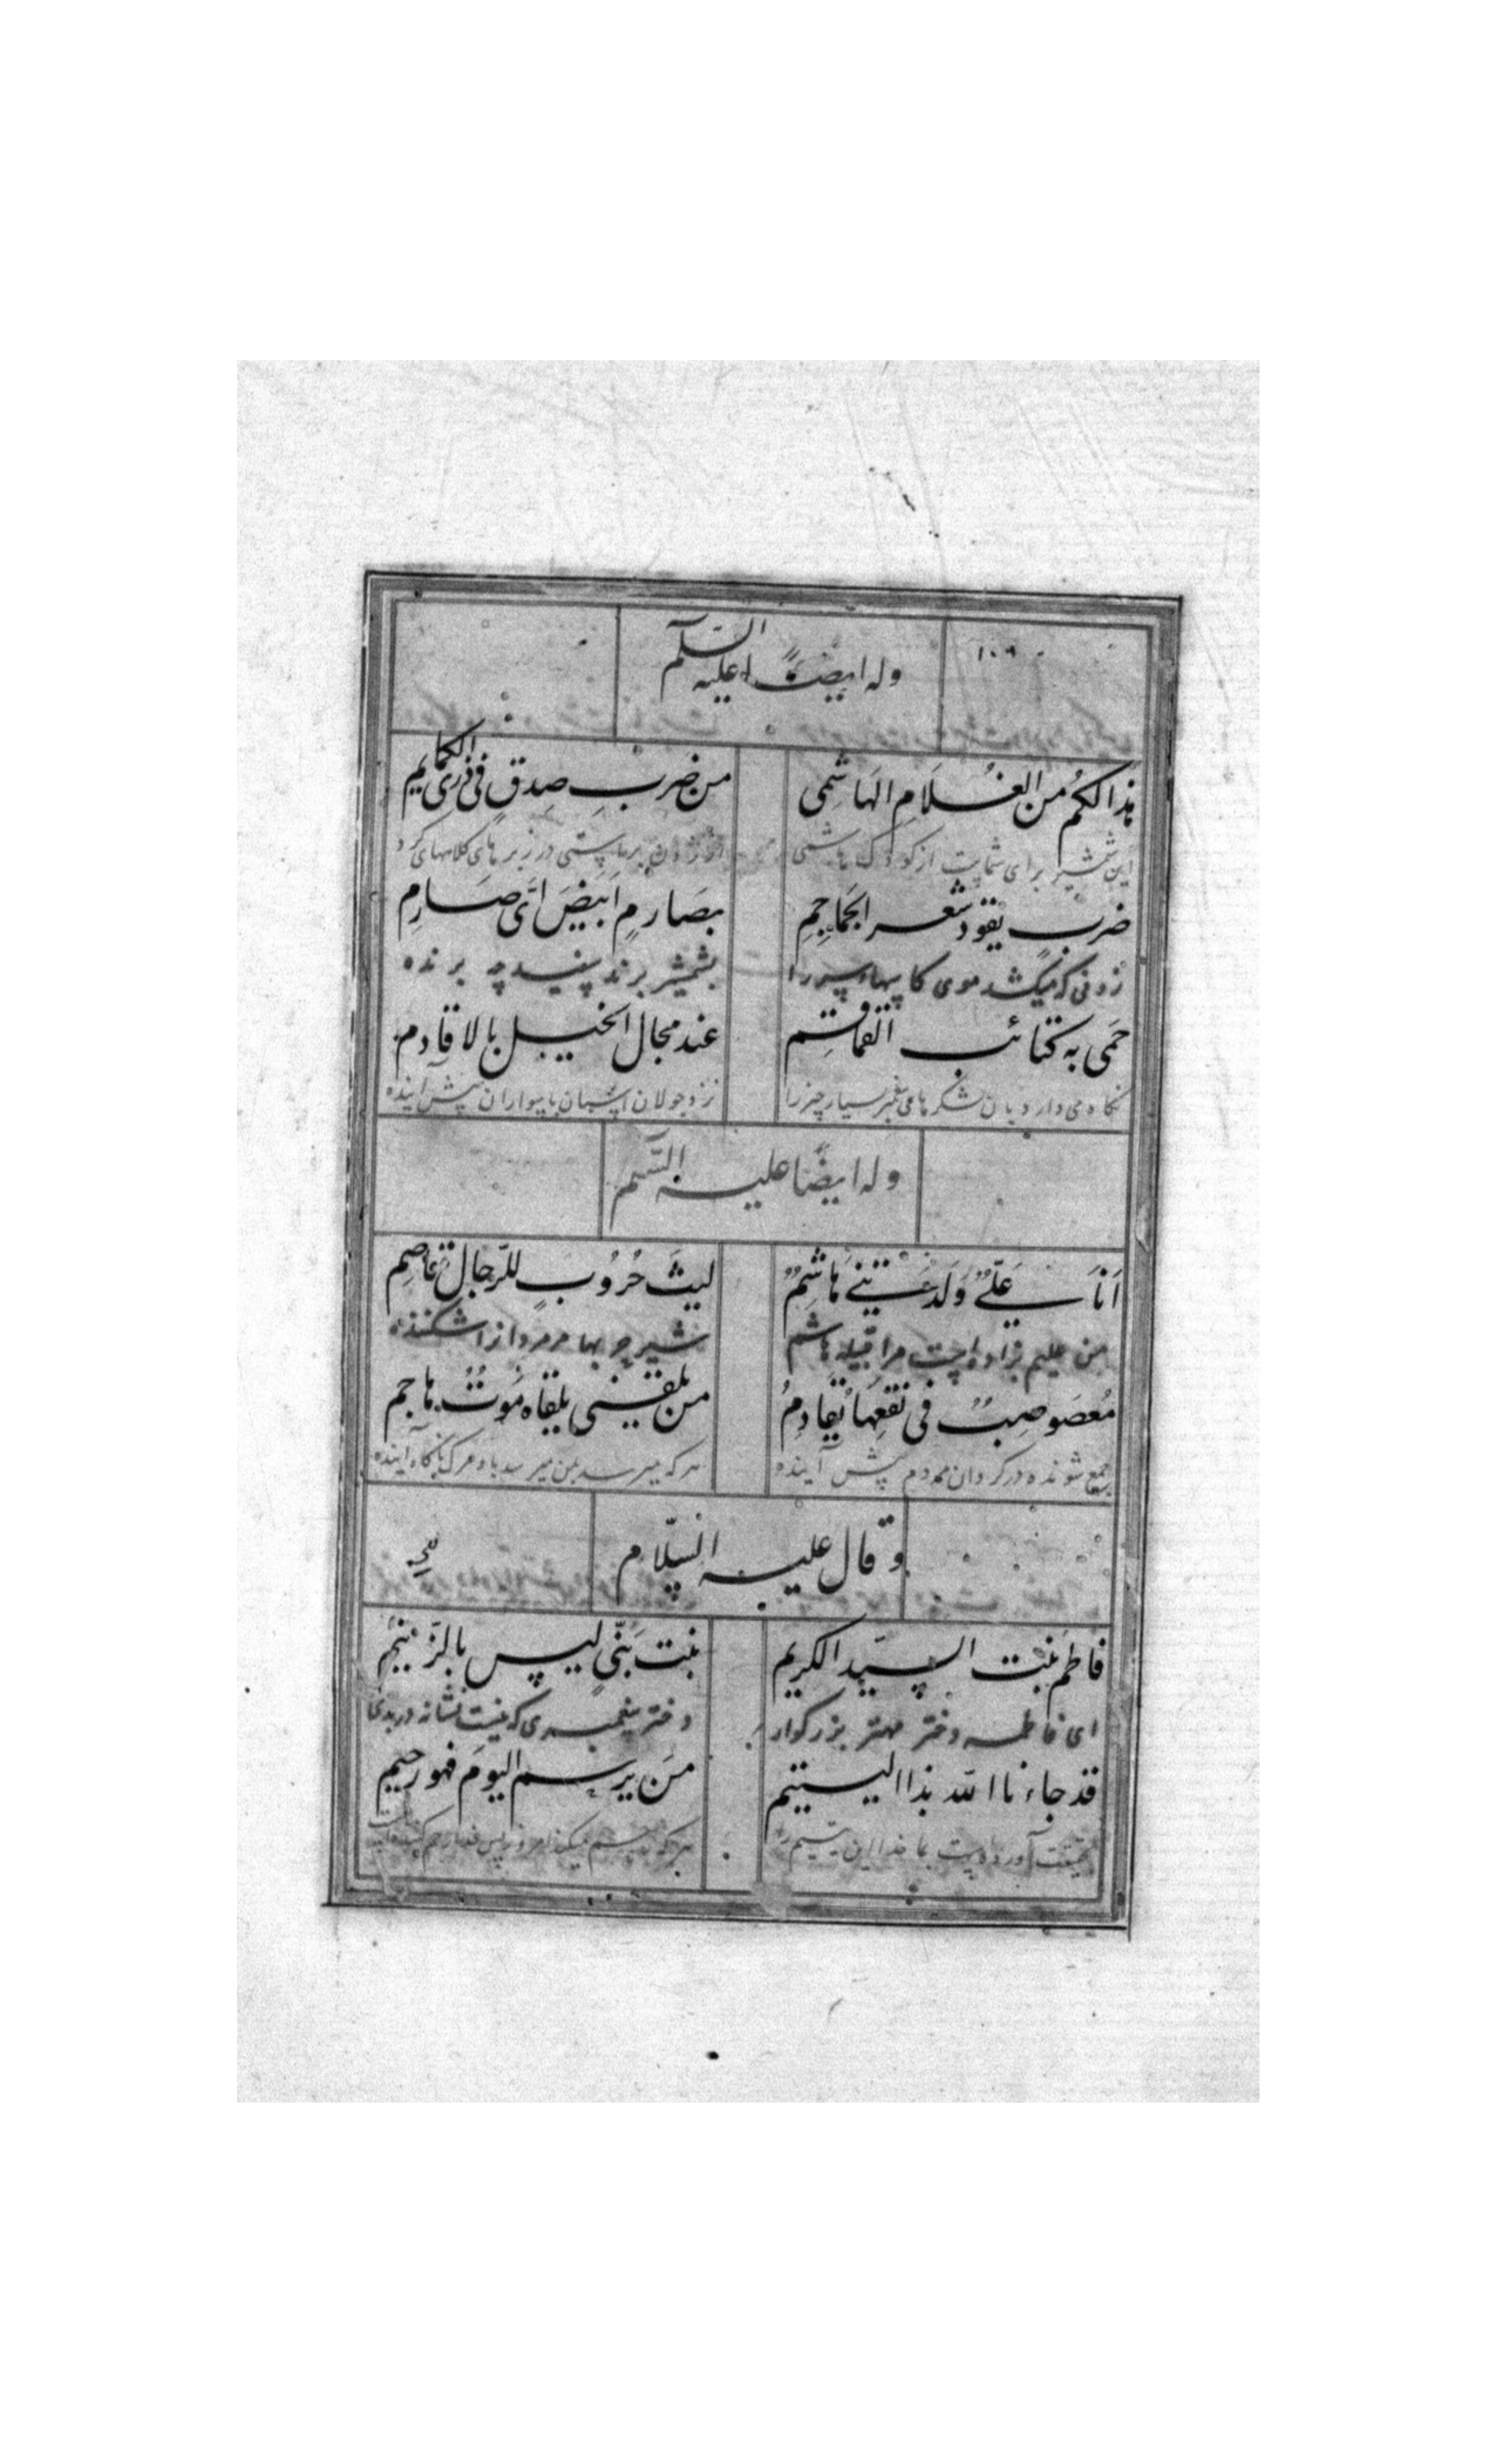 ١٠٩
وله ايضًا عليه السّلم
هذا لكم من الغُلَامِ الهَاشِمى
من ضربِ صِدقٍ فى ذرى الكمايم
اين شمشير براى شماست از كودك هاشمى
از زدن براستى در زبرهاى كلاههاى كرد
ضربٍ يقود شعر الجَمَاجِمِ
بصَارمٍ اَبيَضَ اىّ صَارِمِ
زدنى كه ميكشد موى كاسهاء سر را
بشمشير برنده سفيد چه برنده
حَمى به كتائب القماقِم
عند مجال الخيل بالاقادم
نكاه مى دارد بان لشكرهاى بسيار چيز را
نزد جولان اسبان با سواران پيش آينده
وله ايضًا عليه السّلم
اَنَا عَلىٌّ وَلدَتْنِى هَاشِمٌ
ليثُ حُرُوبٍ للرّجال قاصِم
من عليم زاده است مرا قبيله هاشم
شير حربها مر مردانرا شكننده
مُعصَوصِبٌ فى نَقعِهَا يُقَادِمُ
من يلقنى يلقاه مَوتٌ هاجم
جمع شونده در كرد آن مقدم پيش آينده
هر كه ميرسد بمن ميرسد باو مرك ناكاه آينده
وقال عليه السّلام
فاطم بنت السيّد الكريم
بنت نبّىٍ ليس بالزّنيم
اى فاطمه دختر مهتر بزركوار
دختر پيغمبرى كه نيست نشانه در بدى
قد جاءنا الله بذا اليتيم
مَن يرحم اليومَ فهو رحيم
بحقيقت آورده است بما خدا اين يتيم را
هر كه رحم ميكند امروز پس او رحم كننده است